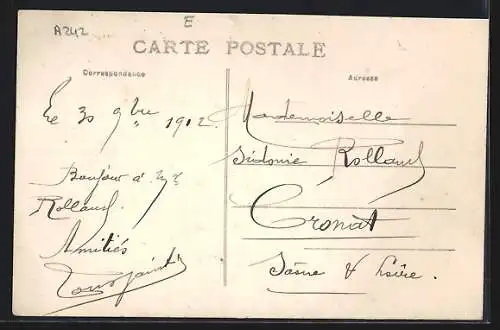 A242
E
CARTE POSTALE
Correspondance
Adresse
Le 30 9bre 1912
Bonjour à
Rolland.
Amitiés
Toussaint
Mademoiselle
Sidonie Rolland
Cronat
Saône & Loire.